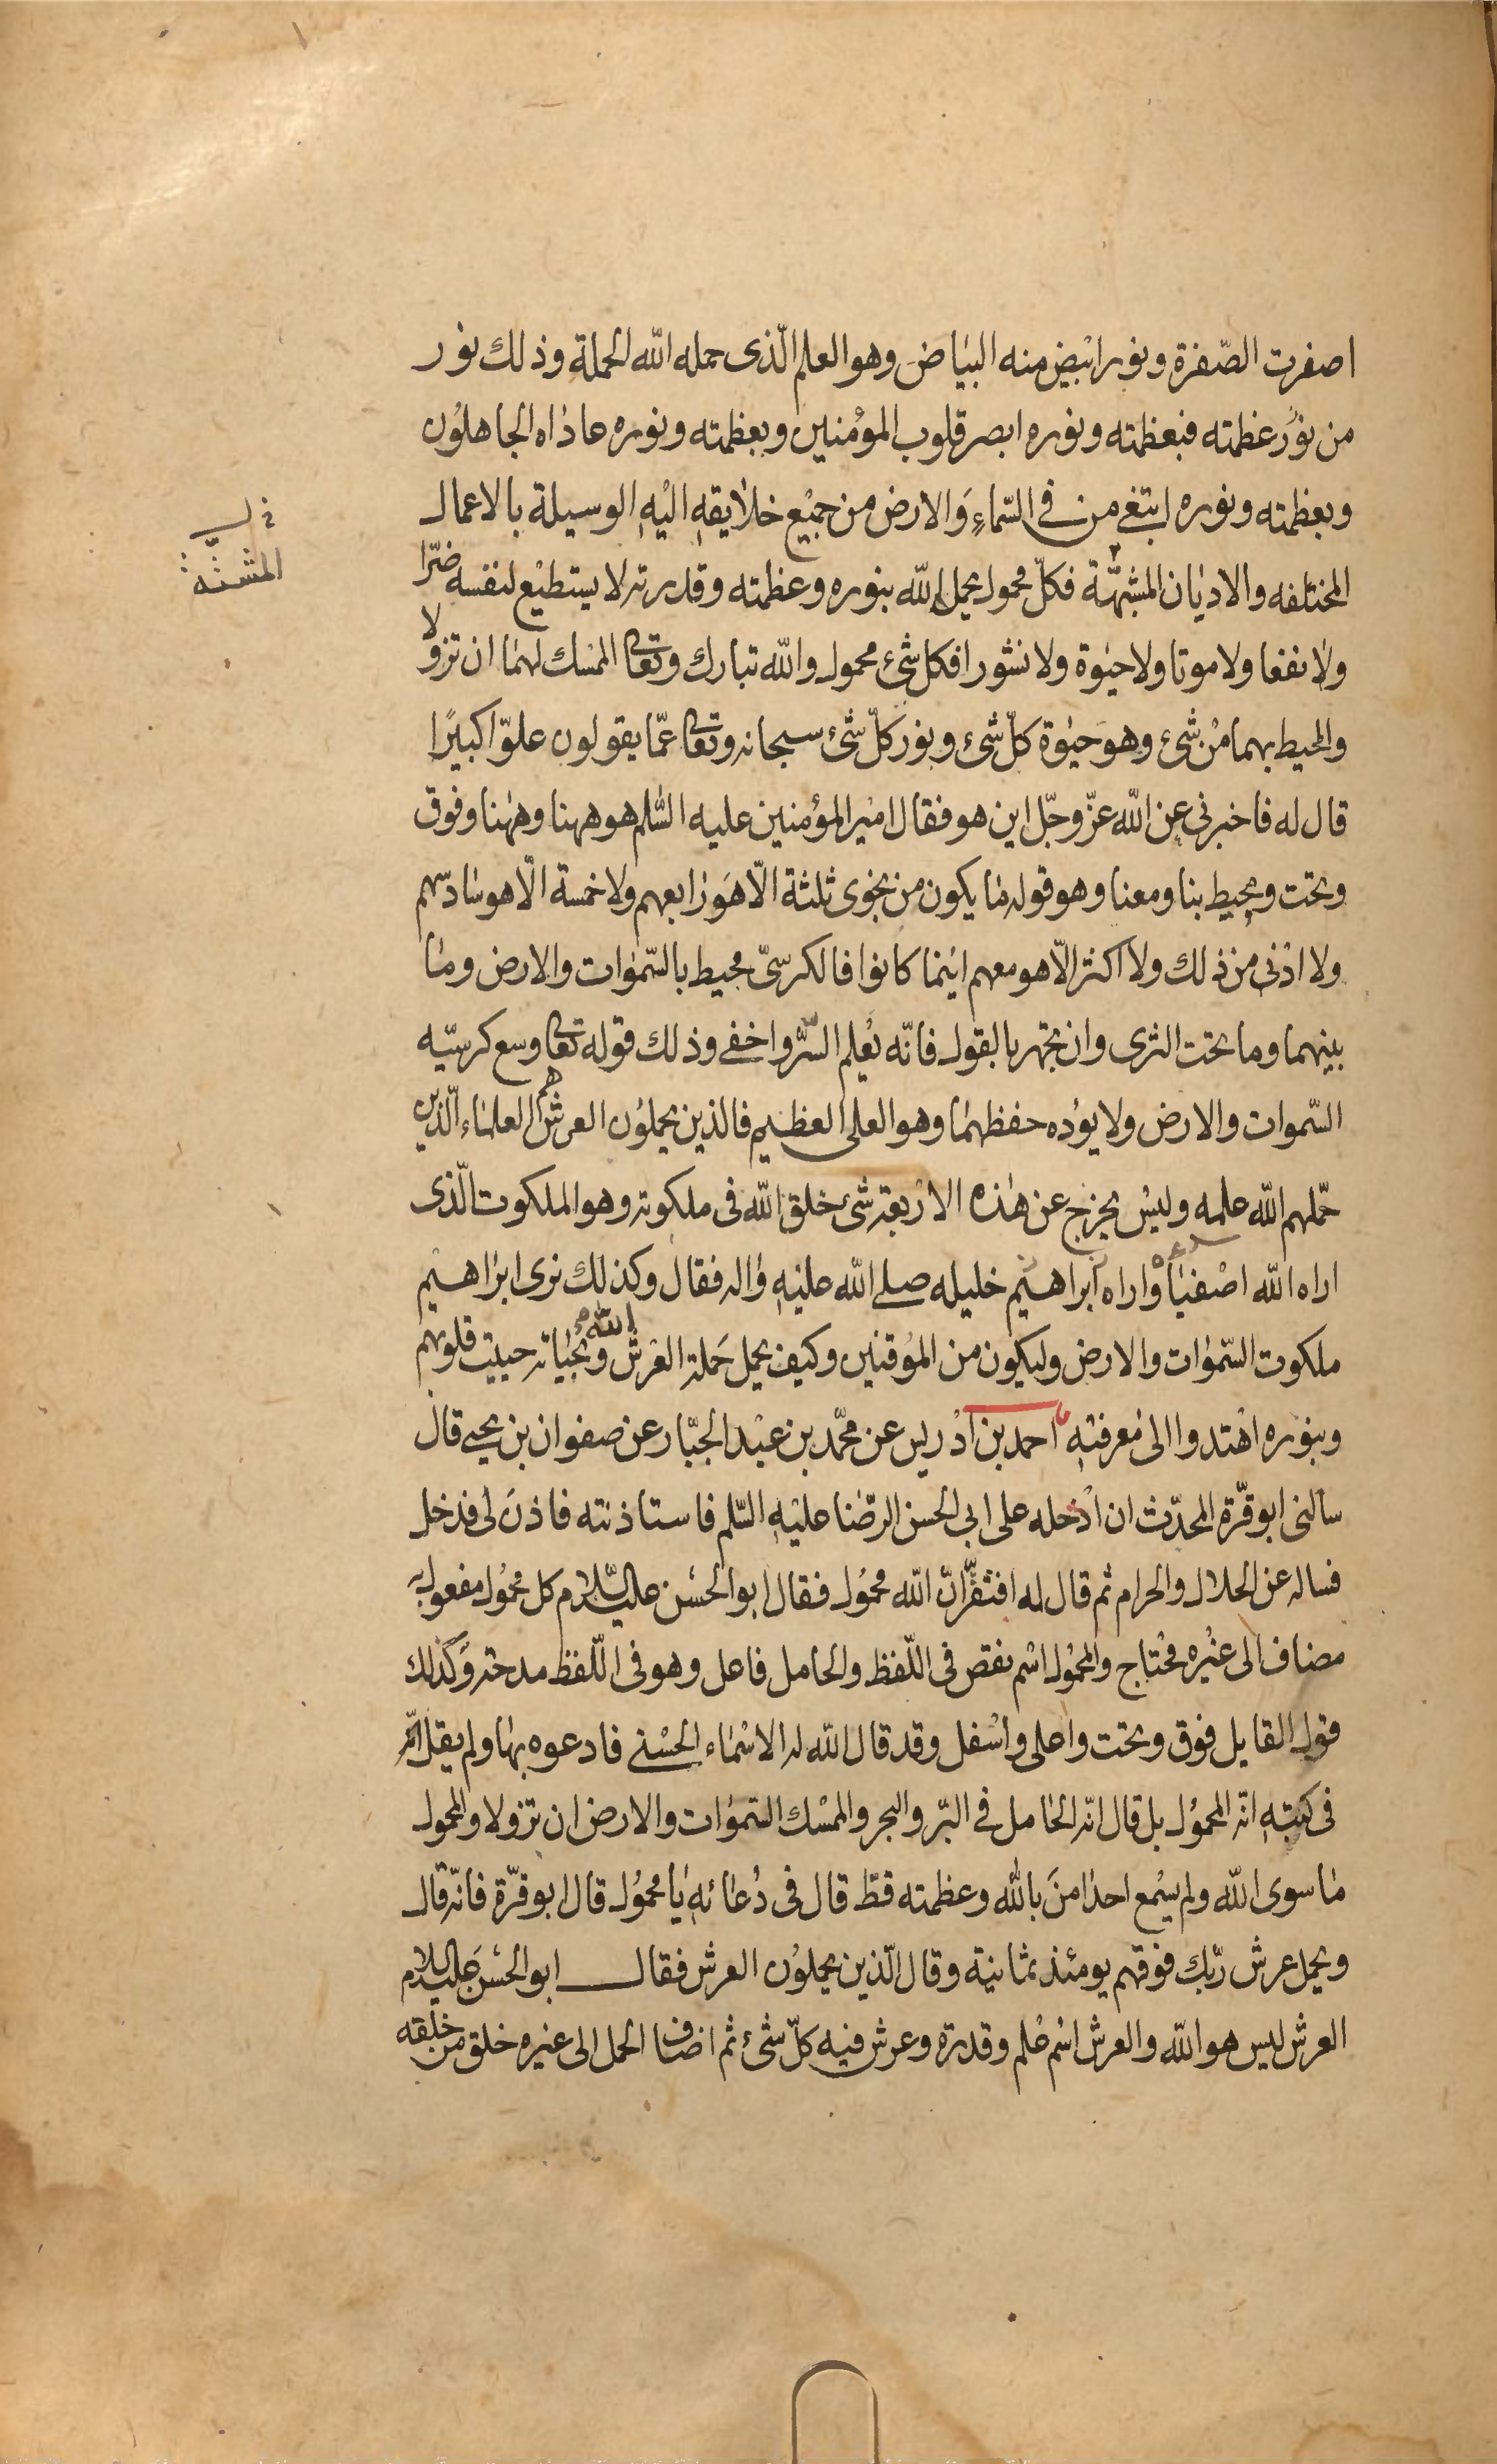 اصفرت الصّفرة ونورا ابيض منه البياض وهو العلم الّذى حمله الله الحملة وذلك نور
من نور عظمته فبعظمته ونوره ابصر قلوب المؤمنين وبعظمته ونوره عاداه الجاهلون
وبعظمته ونوره ابتغى من فى السّماء والارض من جميع خلايقه اليه الوسيلة بالاعمال
المختلفه والاديان المشبهّة فكلّ محمول يحمل الله بنوره وعظمته وقدرته لا يستطيع لنفسه ضرّا
ولا نفعا ولا موتا ولا حيوة ولا نشورا فكل شىء محمول والله تبارك وتعالى الممسك لهما ان تزولا
والمحيط بهما من شىء وهو حيوة كلّ شىء ونور كلّ شىء سبحانه وتعالى عمّا يقولون علوّا كبيرًا
قال له فاخبرنى عن الله عزّ وجلّ اين هو فقال امير المؤمنين عليه السّلم هو ههنا وههنا وفوق
وتحت ومحيط بنا ومعنا وهو قوله ما يكون من نجوى ثلثة الّا هو رابعهم ولا خمسة الّا هو سادسهم
ولا ادنى من ذلك ولا اكثر الّا هو معهم اينما كانوا فالكرسىّ محيط بالسّموات والارض وما
بينهما وما تحت الثرى وان تجهر بالقول فانّه يعلم السّر واخفى وذلك قوله تعالى وسع كرسيّه
السّموات والارض ولا يؤده حفظهما وهو العلى العظيم فالذين يحملون العرش هم العلماء الّذين
حمّلهم الله علمه وليس يخرج عن هذه الاربعة شىء خلق الله فى ملكوته وهو الملكوت الّذى
اراه الله اصفياءه واراه ابراهيم خليله صلى الله عليه واله فقال وكذلك نرى ابراهيم
ملكوت السّموات والارض وليكون من الموقنين وكيف يحمل حملة العرش الله وبحياته حييت قلوبهم
وبنوره اهتدوا الى معرفته احمد بن ادريس عن محمّد بن عبد الجبّار عن صفوان بن يحيى قال
سالنى ابو قرّة المحدّث ان ادخله على ابى الحسن الرّضا عليه السّلم فاستاذنته فاذن لى فدخل
فساله عن الحلال والحرام ثم قال له افتقرّ انّ الله محمول فقال ابو الحسن عليه السّلام كل محمول مفعول به
مضاف الى غيره محتاج والمحمول اسم نقص فى اللّفظ والحامل فاعل وهو فى اللّفظ مدحة وكذلك
قول القايل فوق وتحت واعلى واسفل وقد قال الله له الاسماء الحسنى فادعوه بها ولم يقل انّه
فى كتبه انّه المحمول بل قال انّه الحامل فى البرّ والبحر والممسك السّموات والارض ان تزولا والمحمول
ما سوى الله ولم يسمع احدا من بالله وعظمته قطّ قال فى دعائه يا محمول قال ابو قرّة فانّه قال
ويحمل عرش ربّك فوقهم يومئذ ثمانية وقال الّذين يحملون العرش فقال ابو الحسن عليه السلام
العرش ليس هو الله والعرش اسم علم وقدرة وعرش فيه كلّ شىء ثم اضاف الحمل الى غيره خلق من خلقه